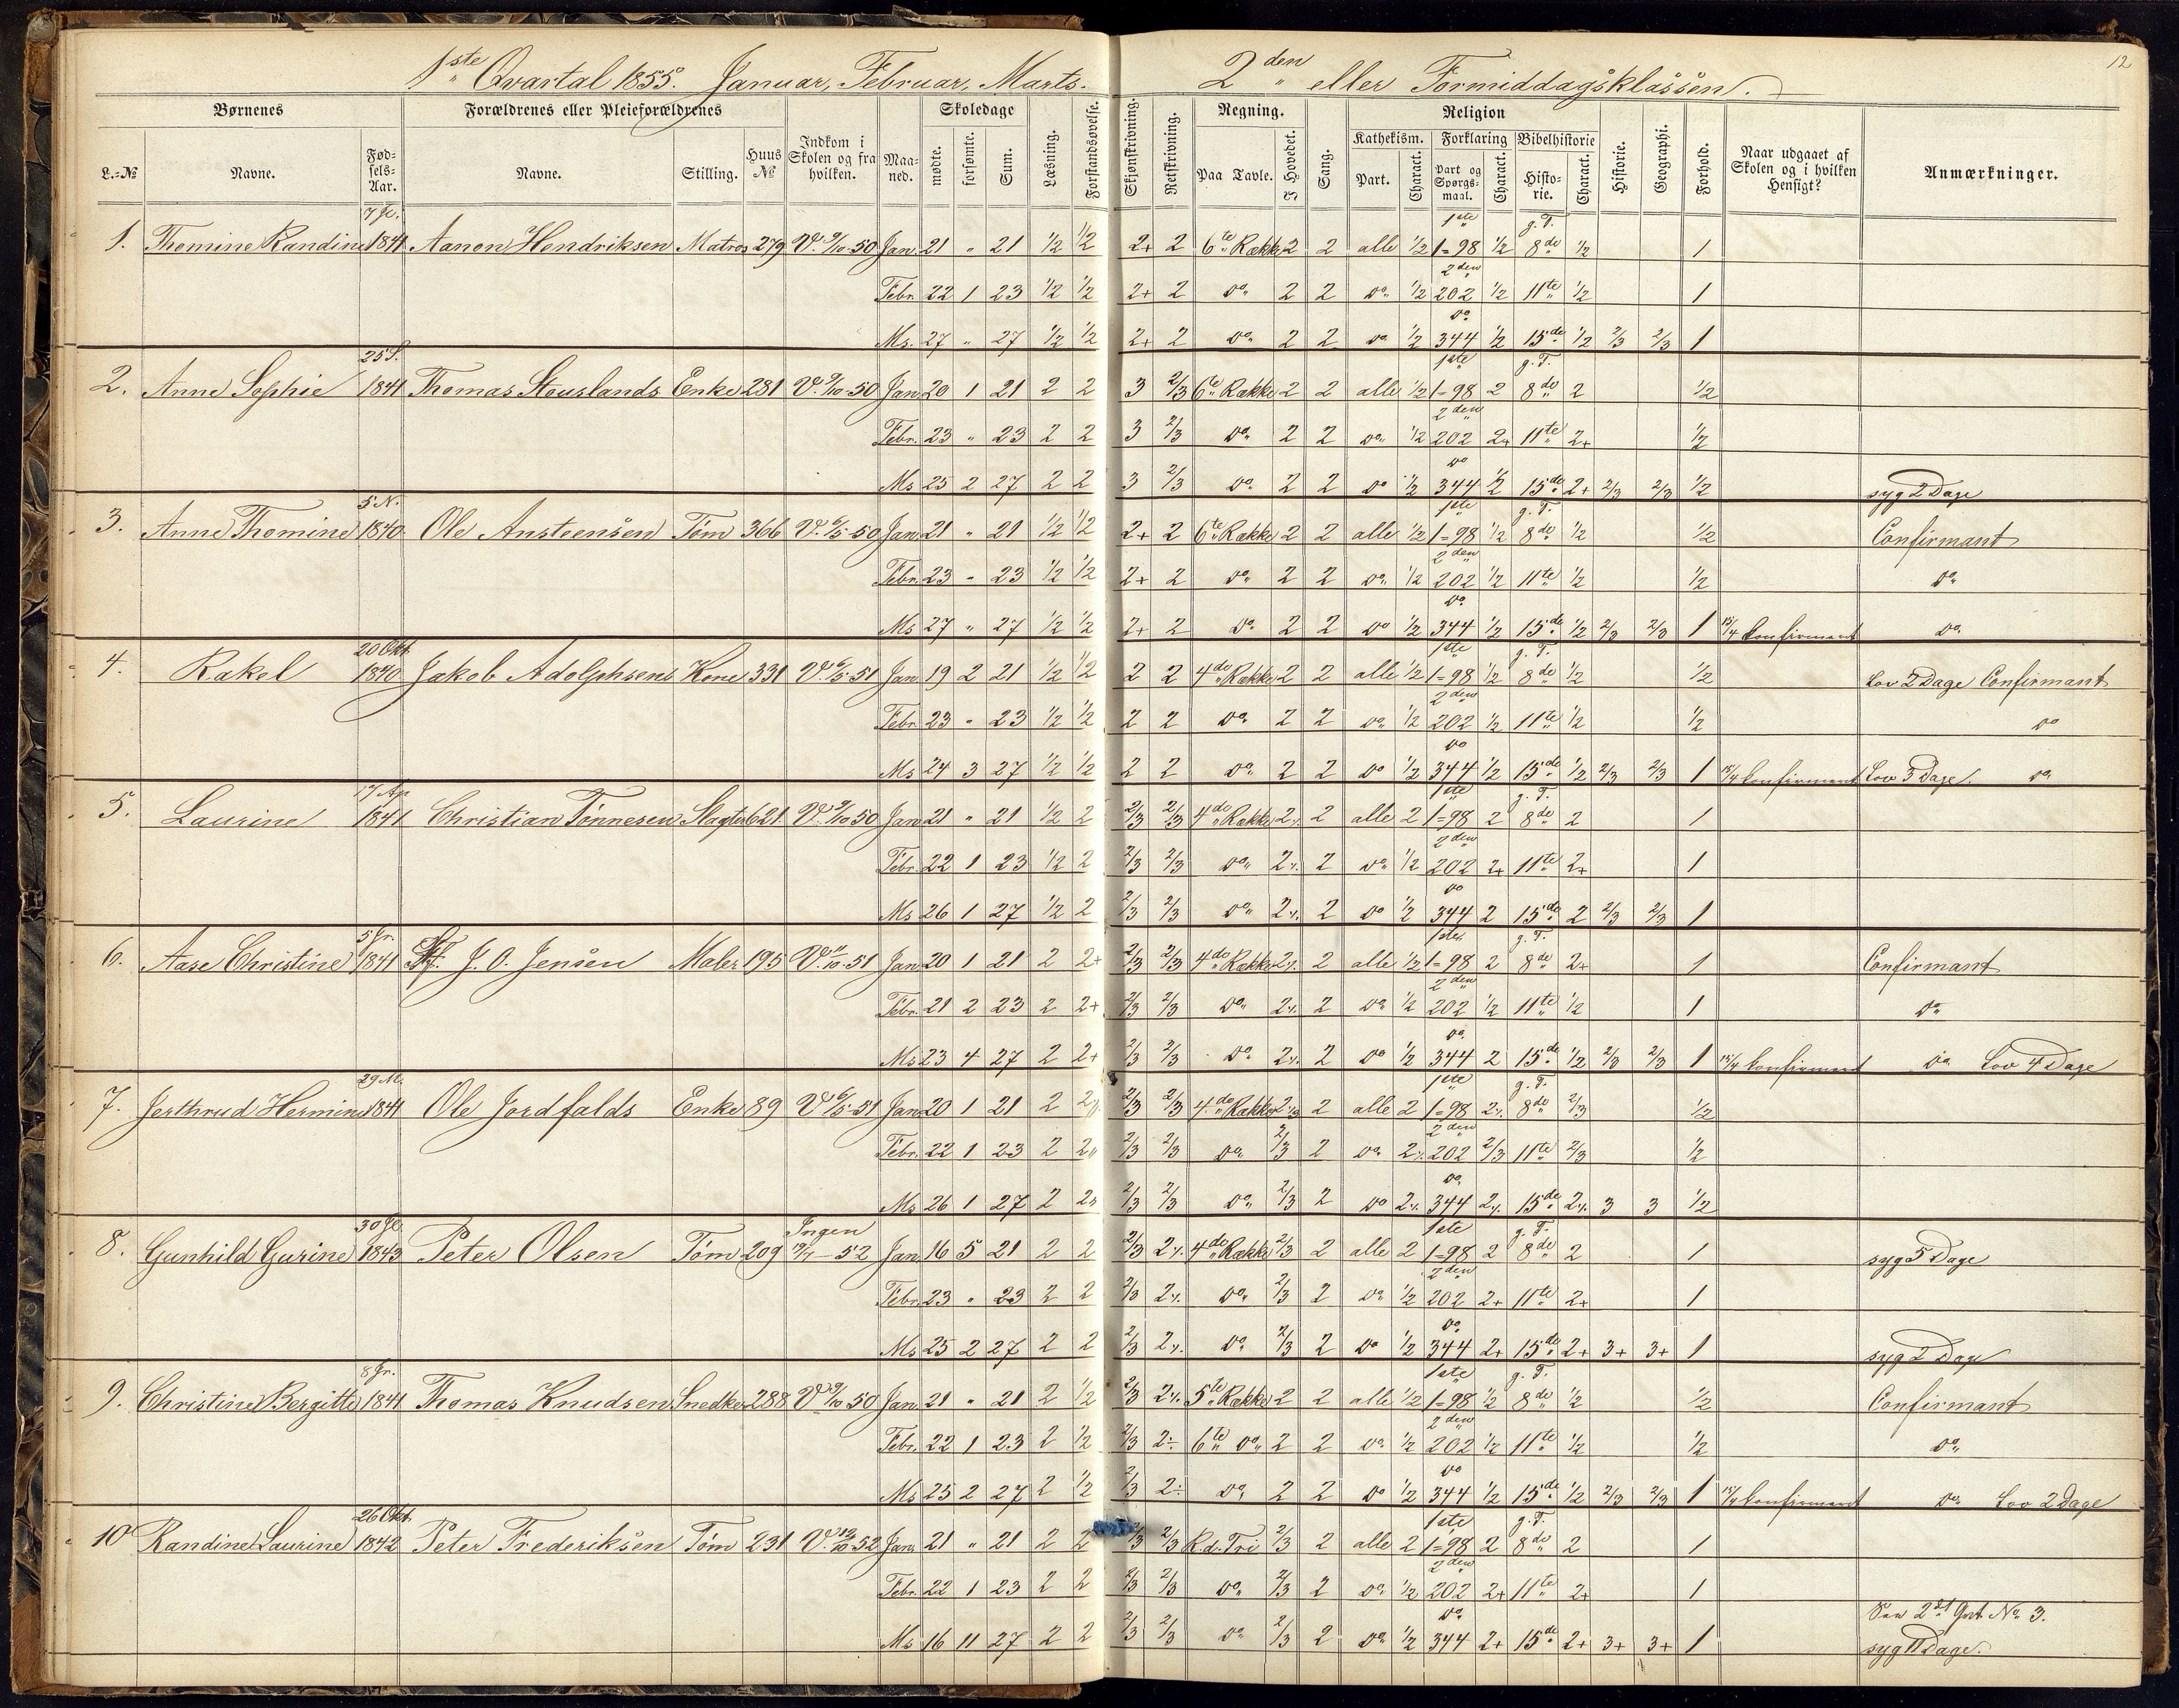 12
1ste Qvartal 1855. Januar, Februar, Marts. 2den eller Formiddagsklassen.
Børnenes Forældrenes eller Pleieforældrenes Indkom i Skolen og fra hvilken. Maaned. Skoledage Læsning. Forstandsøvelse. Skjønskrivning. Retskrivning. Regning. Sang. Religion Historie. Geographi. Forhold. Naar udgaaet af Skolen og i hvilken Hensigt? Anmærkninger.
L.-№ Navne. Fødsels-Aar. Navne. Stilling. Huus № mødte. forsømte. Sum. Paa Tavle. I Hovedet. Kathekism. Forklaring Bibelhistorie
Part. Charact. Part og Spørgsmaal. Charact. Historie. Charact.
1ste g. T.
1. Thomine Randine 1841 Aanon Hendriksen Matros 279 V. 9/10 50 Jan. 21 " 21 1/2 1/2 2+ 2 6te Række 2 2 alle 1/2 1=98 1/2 8de 1/2 1
2den
Febr. 22 1 23 1/2 1/2 2+ 2 do 2 2 do 1/2 202 1/2 11te 1/2 1
do
Ms. 27 " 27 1/2 1/2 2+ 2 do 2 2 do 1/2 344 1/2 15de 1/2 2/3 2/3 1
25 S. 1ste g. T.
2. Anne Sophie 1841 Thomas Stouslands Enke 281 V. 9/10 50 Jan 20 1 21 2 2 3 2/3 6te Række 2 2 alle 1/2 1=98 2 8de 2 1/2
2den
Febr. 23 " 23 2 2 3 2/3 do 2 2 do 1/2 202 2+ 11te 2+ 1/2
do
Ms 25 2 27 2 2 3 2/3 do 2 2 do 1/2 344 1/2 15de 2+ 2/3 2/3 1/2 syg 2 Dage
5 N. 1ste g. T.
3. Anne Thomine 1840 Ole Ansteensen Tøm 366 V. 6/5 50 Jan 21 " 21 1/2 1/2 2+ 2 6te Række 2 2 alle 1/2 1=98 1/2 8de 1/2 1/2 Confirmant
2den
Febr. 23 " 23 1/2 1/2 2+ 2 do 2 2 do 1/2 202 1/2 11te 1/2 1/2 do
do
Ms 27 " 27 1/2 1/2 2+ 2 do 2 2 do 1/2 344 1/2 15de 1/2 2/3 2/3 1 15/4 Confirmant do
20 Okt. 1ste g. T.
4. Rakel 1840 Jakob Adolphsens Kone 331 V. 6/5 51 Jan 19 2 21 1/2 1/2 2 2 4de Række 2 2 alle 1/2 1=98 1/2 8de 1/2 1/2 Lov 2 Dage Confirmant
2den
Febr. 23 " 23 1/2 1/2 2 2 do 2 2 do 1/2 202 1/2 11te 1/2 1/2 do
do
Ms 24 3 27 1/2 1/2 2 2 do 2 2 do 1/2 344 1/2 15de 1/2 2/3 2/3 1 15/4 Confirmant Lov 3 Dage. do
17 Ap 1ste g. T.
5. Laurine 1841 Christian Tønnesen Slagter 621 V. 9/10 50 Jan 21 " 21 1/2 2 2/3 2/3 4de Række 2÷ 2 alle 2 1=98 2 8de 2 1
2den
Febr. 22 1 23 1/2 2 2/3 2/3 do 2÷ 2 do 1/2 202 2+ 11te 2+ 1
do
Ms 26 1 27 1/2 2 2/3 2/3 do 2÷ 2 do 1/2 344 2 15de 2 2/3 2/3 1
1ste g. T.
6. Aase Christine 1841 J. O. Jensen Maler 195 51 Jan 20 1 21 2 2+ 2/3 2/3 4de Række 2÷ 2 alle 1/2 1=98 2 8de 2+ 1 Confirmant
2den
Febr. 21 2 23 2 2+ 2/3 2/3 do 2÷ 2 do 1/2 202 1/2 11te 1/2 1 do
do
Ms 23 4 27 2 2+ 2/3 2/3 do 2÷ 2 do 1/2 344 2 15de 1/2 2/3 2/3 1 15/4 Confirmant do Lov 4 Dage
29 M. 1ste g. T.
7. Jerthrud Hermine 1841 Ole Jordfalds Enke 89 V 6/5 51 Jan 20 1 21 2 2÷ 2/3 2/3 4de Række 2 alle 2 1=98 2÷ 8de 2/3 1/2
2den
Febr. 22 1 23 2 2÷ 2/3 2/3 do 2/3 2 do 2÷ 202 2/3 11te 2/3 1/2
do
Ms 26 1 27 2 2÷ 2/3 2/3 do 2/3 2 do 2÷ 344 2÷ 15de 2÷ 3 3 1/2
Ingen 1ste g. T.
8. Gunhild Gurine 1843 Peter Olsen Tøm 209 52 Jan. 16 5 21 2 2 2/3 2÷ 4de Række 2/3 2 alle 2 1=98 2 8de 2 1 syg 5 Dage
2den
Febr. 23 " 23 2 2 2/3 2÷ do 2/3 2 do 1/2 202 2+ 11te 2+ 1
do
Ms 25 2 27 2 2 2/3 2÷ do 2/3 2 do 1/2 344 2+ 15de 2+ 3+ 3+ 1 syg 2 Dage
1ste g. T.
9. Christine Bergitte 1841 Thomas Knudsen Snedker 288 V 9/10 50 Jan. 21 " 21 2 1/2 2/3 2÷ 5te Række 2 2 alle 1/2 1=98 1/2 8de 1/2 1/2 Confirmant
2den
Febr. 22 1 23 2 1/2 2/3 2÷ 6te do 2 2 do 1/2 202 1/2 11te 1/2 1/2 do
do
Ms 25 2 27 2 1/2 2/3 2÷ do 2 2 do 1/2 344 1/2 15de 1/2 2/3 2/3 1 15/4 Confirmant do Lov 2 Dage
26 Okt. 1ste g. T.
10 Randine Laurine 1842 Peter Frederiksen Tøm 231 52 Jan 21 " 21 2 2 2/3 2/3 R. d. Tri 2/3 2 alle 2 1=98 2 8de 2 1
2den
Febr. 22 1 23 2 2 2/3 2/3 do 2/3 2 do 1/2 202 2+ 11te 2+ 1
do No 3.
Ms 16 11 27 2 2 2/3 2/3 do 2/3 2 do 1/2 344 2+ 15de 2+ 3+ 3+ 1 syg 11 Dage.